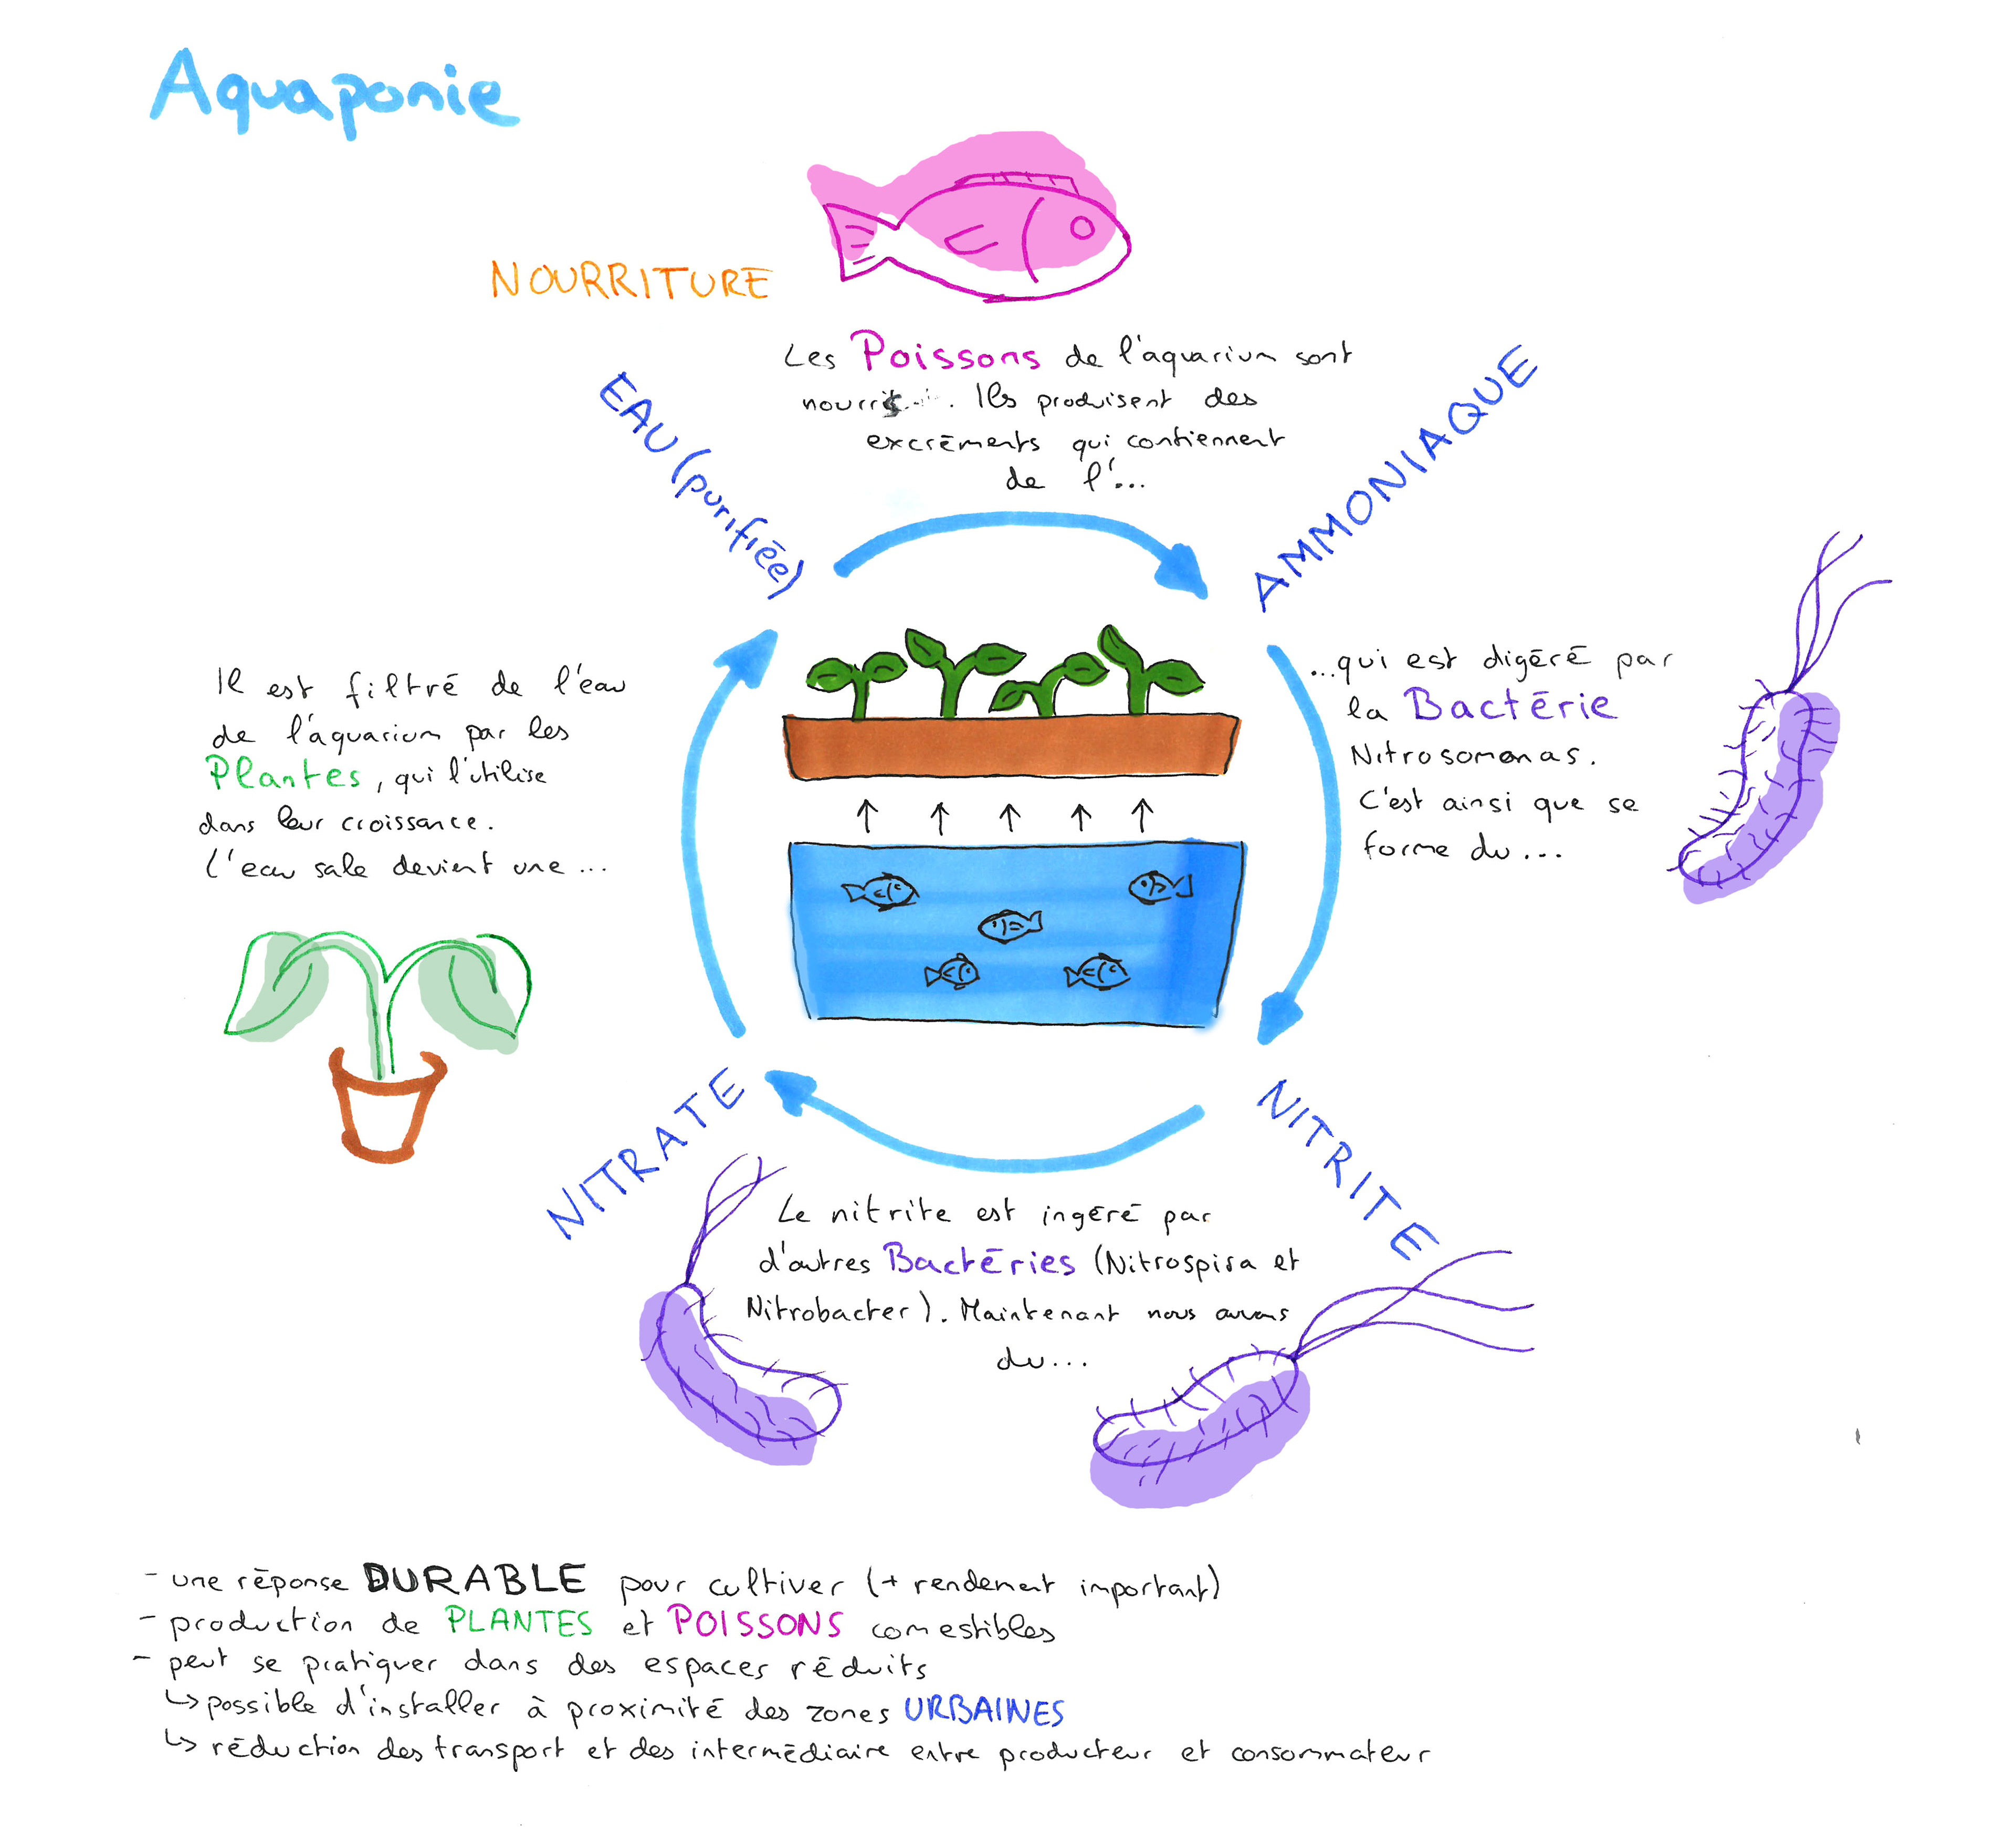 Aquaponie
NOURRITURE
Les Poissons de l'aquarium sont
nourris. Ils produisent des
excréments qui contiennent
de l'...
AMMONIAQUE
...qui est digéré par
la Bactérie
Nitrosomonas.
C'est ainsi que se
forme du...
NITRITE
Le nitrite est ingéré par
d'autres Bactéries (Nitrospira et
Nitrobacter). Maintenant nous avons
du...
NITRATE
Il est filtré de l'eau
de l'aquarium par les
Plantes, qui l'utilise
dans leur croissance.
L'eau sale devient une...
EAU (purifiée)
- une réponse DURABLE pour cultiver (+ rendement important)
- production de PLANTES et POISSONS comestibles
- peut se pratiquer dans des espaces réduits
↳ possible d'installer à proximité des zones URBAINES
↳ réduction des transport et des intermédiaire entre producteur et consommateur